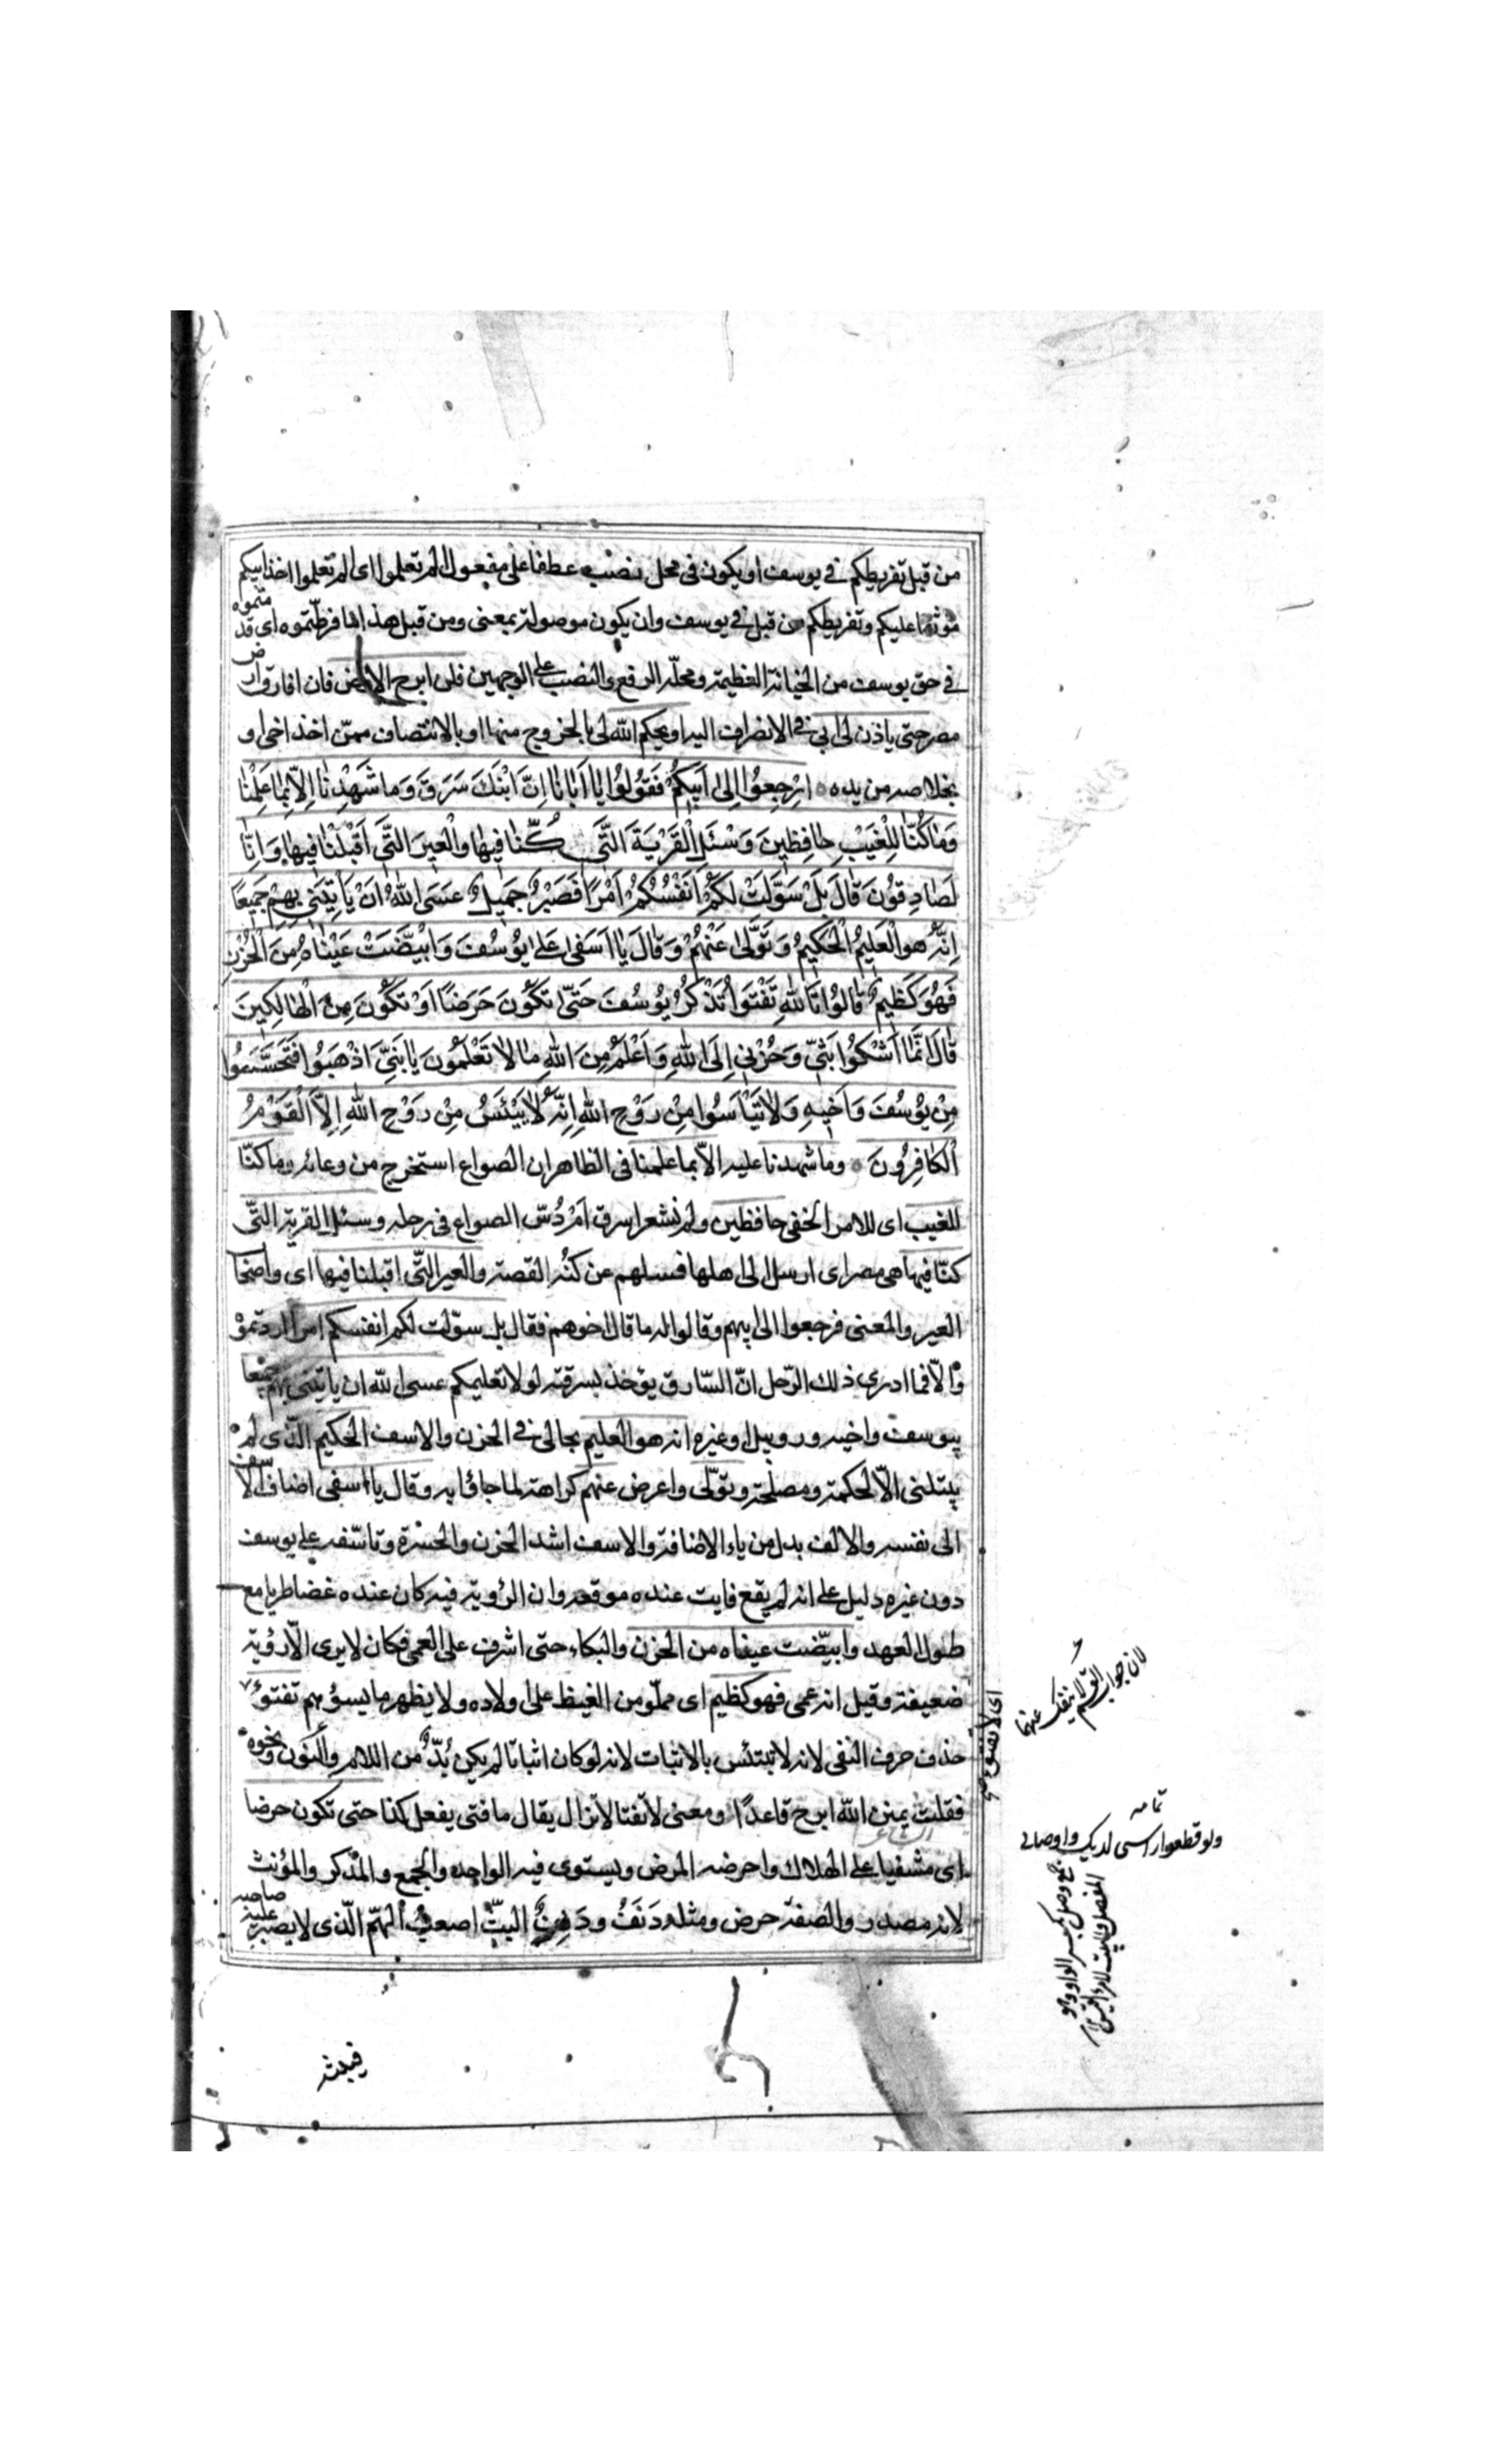 من قبل تفريطكم في يوسف او يكون في محل نصب عطفا على مفعول الم تعلموا اى الم تعلموا اخذ ابيكم
موثقا عليكم وتفريطكم من قبل في يوسف وان يكون موصولة بمعنى ومن قبل هذا ما فرطتموه اى قدمتموه
في حق يوسف من الخيانة العظيمة ومحله الرفع والنصب على الوجهين فلن ابرح الارض فان افارق ارض
مصر حتى ياذن لى ابى في الانصراف اليه او يحكم الله لى بالخروج منها او بالانتصاف ممن اخذ اخى او
بخلاصه من يده اِرْجِعُوا اِلىٰ اَبيكُمْ فَقُولُوا يٰا اَبٰانٰا اِنَّ ابْنَكَ سَرَقَ وَمٰا شَهِدْنٰا اِلّٰا بِمٰا عَلِمْنٰا
وَمٰا كُنّٰا لِلْغَيْبِ حٰافِظينَ وَسْئَلِ الْقَرْيَةَ الَّتى كُنّٰا فيهٰا وَالْعيرَ الَّتى اَقْبَلْنٰا فيهٰا وَاِنّٰا
لَصٰادِقُونَ قٰالَ بَلْ سَوَّلَتْ لَكُمْ اَنْفُسُكُمْ اَمْرًا فَصَبْرٌ جَميلٌ عَسَى اللّٰهُ اَنْ يَأْتِيَنى بِهِمْ جَميعًا
اِنَّهُ هُوَ الْعَليمُ الْحَكيمُ وَتَوَلّٰى عَنْهُمْ وَقٰالَ يٰا اَسَفىٰ عَلىٰ يُوسُفَ وَابْيَضَّتْ عَيْنٰاهُ مِنَ الْحُزْنِ
فَهُوَ كَظيمٌ قٰالُوا تَاللّٰهِ تَفْتَوُا تَذْكُرُ يُوسُفَ حَتّٰى تَكُونَ حَرَضًا اَوْ تَكُونَ مِنَ الْهٰالِكينَ
قٰالَ اِنَّمٰا اَشْكُوا بَثّى وَحُزْنى اِلَى اللّٰهِ وَاَعْلَمُ مِنَ اللّٰهِ مٰا لٰا تَعْلَمُونَ يٰا بَنِىَّ اذْهَبُوا فَتَحَسَّسُوا
مِنْ يُوسُفَ وَاَخيهِ وَلٰا تَيْاَسُوا مِنْ رَوْحِ اللّٰهِ اِنَّهُ لٰا يَيْئَسُ مِنْ رَوْحِ اللّٰهِ اِلَّا الْقَوْمُ
الْكٰافِرُونَ وما شهدنا عليه الّا بما علمنا فى الظاهر ان الصواع استخرج من وعائه وما كنّا
للغيب اى للامر الخفى حافظين ولم نشعر اسرق اَمْ دُسّ الصواع فى رحله وسئل القرية التّى
كنّا فيها هى مصر اى ارسل الى اهلها فسلهم عن كُنْه القصة والعير التّى اقبلنا فيها اى واصحاب
العير والمعنى فرجعوا الى ابيهم وقالوا له ما قال اخوهم فقال بل سوّلت لكم انفسكم امرا اردتموْ
والّا فما ادرى ذلك الرّجل انّ السّارق يؤخذ بسرقته لولا تعليمكم عسى اللّه ان ياتينى بهم جميعا
بيوسف واخيه وروبيل او غيره انه هو العليم بحالى فى الحزن والاسف الحكيم الّذى لم
يبتلنى الّا لحكمة ومصلحة وتولّى واعرض عنهم كراهة لما جاؤا به وقال يا اسفى اضاف الاسف
الى نفسه والالف بدل من ياء الاضافة والاسف اشد الحزن والحسْرة وتاسّفه على يوسف
دون غيره دليل على انه لم يقع فايت عنده موقعه وان الرؤية فيه كان عنده غضا طريا مع
طول العهد وابيضّت عيناه من الحزن والبكاء حتى اشرف على العمى فكان لا يرى الّا رؤية
ضعيفة وقيل انه عمى فهو كظيم اى مملّو من الغيظ على اولاده ولا يظهر ما يسؤهم تفتؤ
حذف حرف النفى لانه لا يلتبس بالاثبات لانه لو كان اثباتا لم يكن بُدٌّ من اللام والنون ونحوه
فقلت يمين اللّه ابرح قاعدًا ومعنى لا تفتا لا تزال يقال ما فتى يفعل كذا حتى تكون حرضا
اى مشفيا على الهلاك واحرضه المرض ويستوى فيه الواحد والجمع والمذكر والمؤنث
لانه مصدر والصفة حرض ومثله دَنَفٌ ودَنِفٌ البثّ اصعب الهمّ الّذى لا يصبر عليه صاحبه
اى لا تفتؤ
لان جواب القسم لا ينفك عنهما
تمامه
ولو قطعوا راسى لديك واوصالى
جمع وصل بكسر الواو وهو
المفصل والبيت لامرء القيس
فيبثه